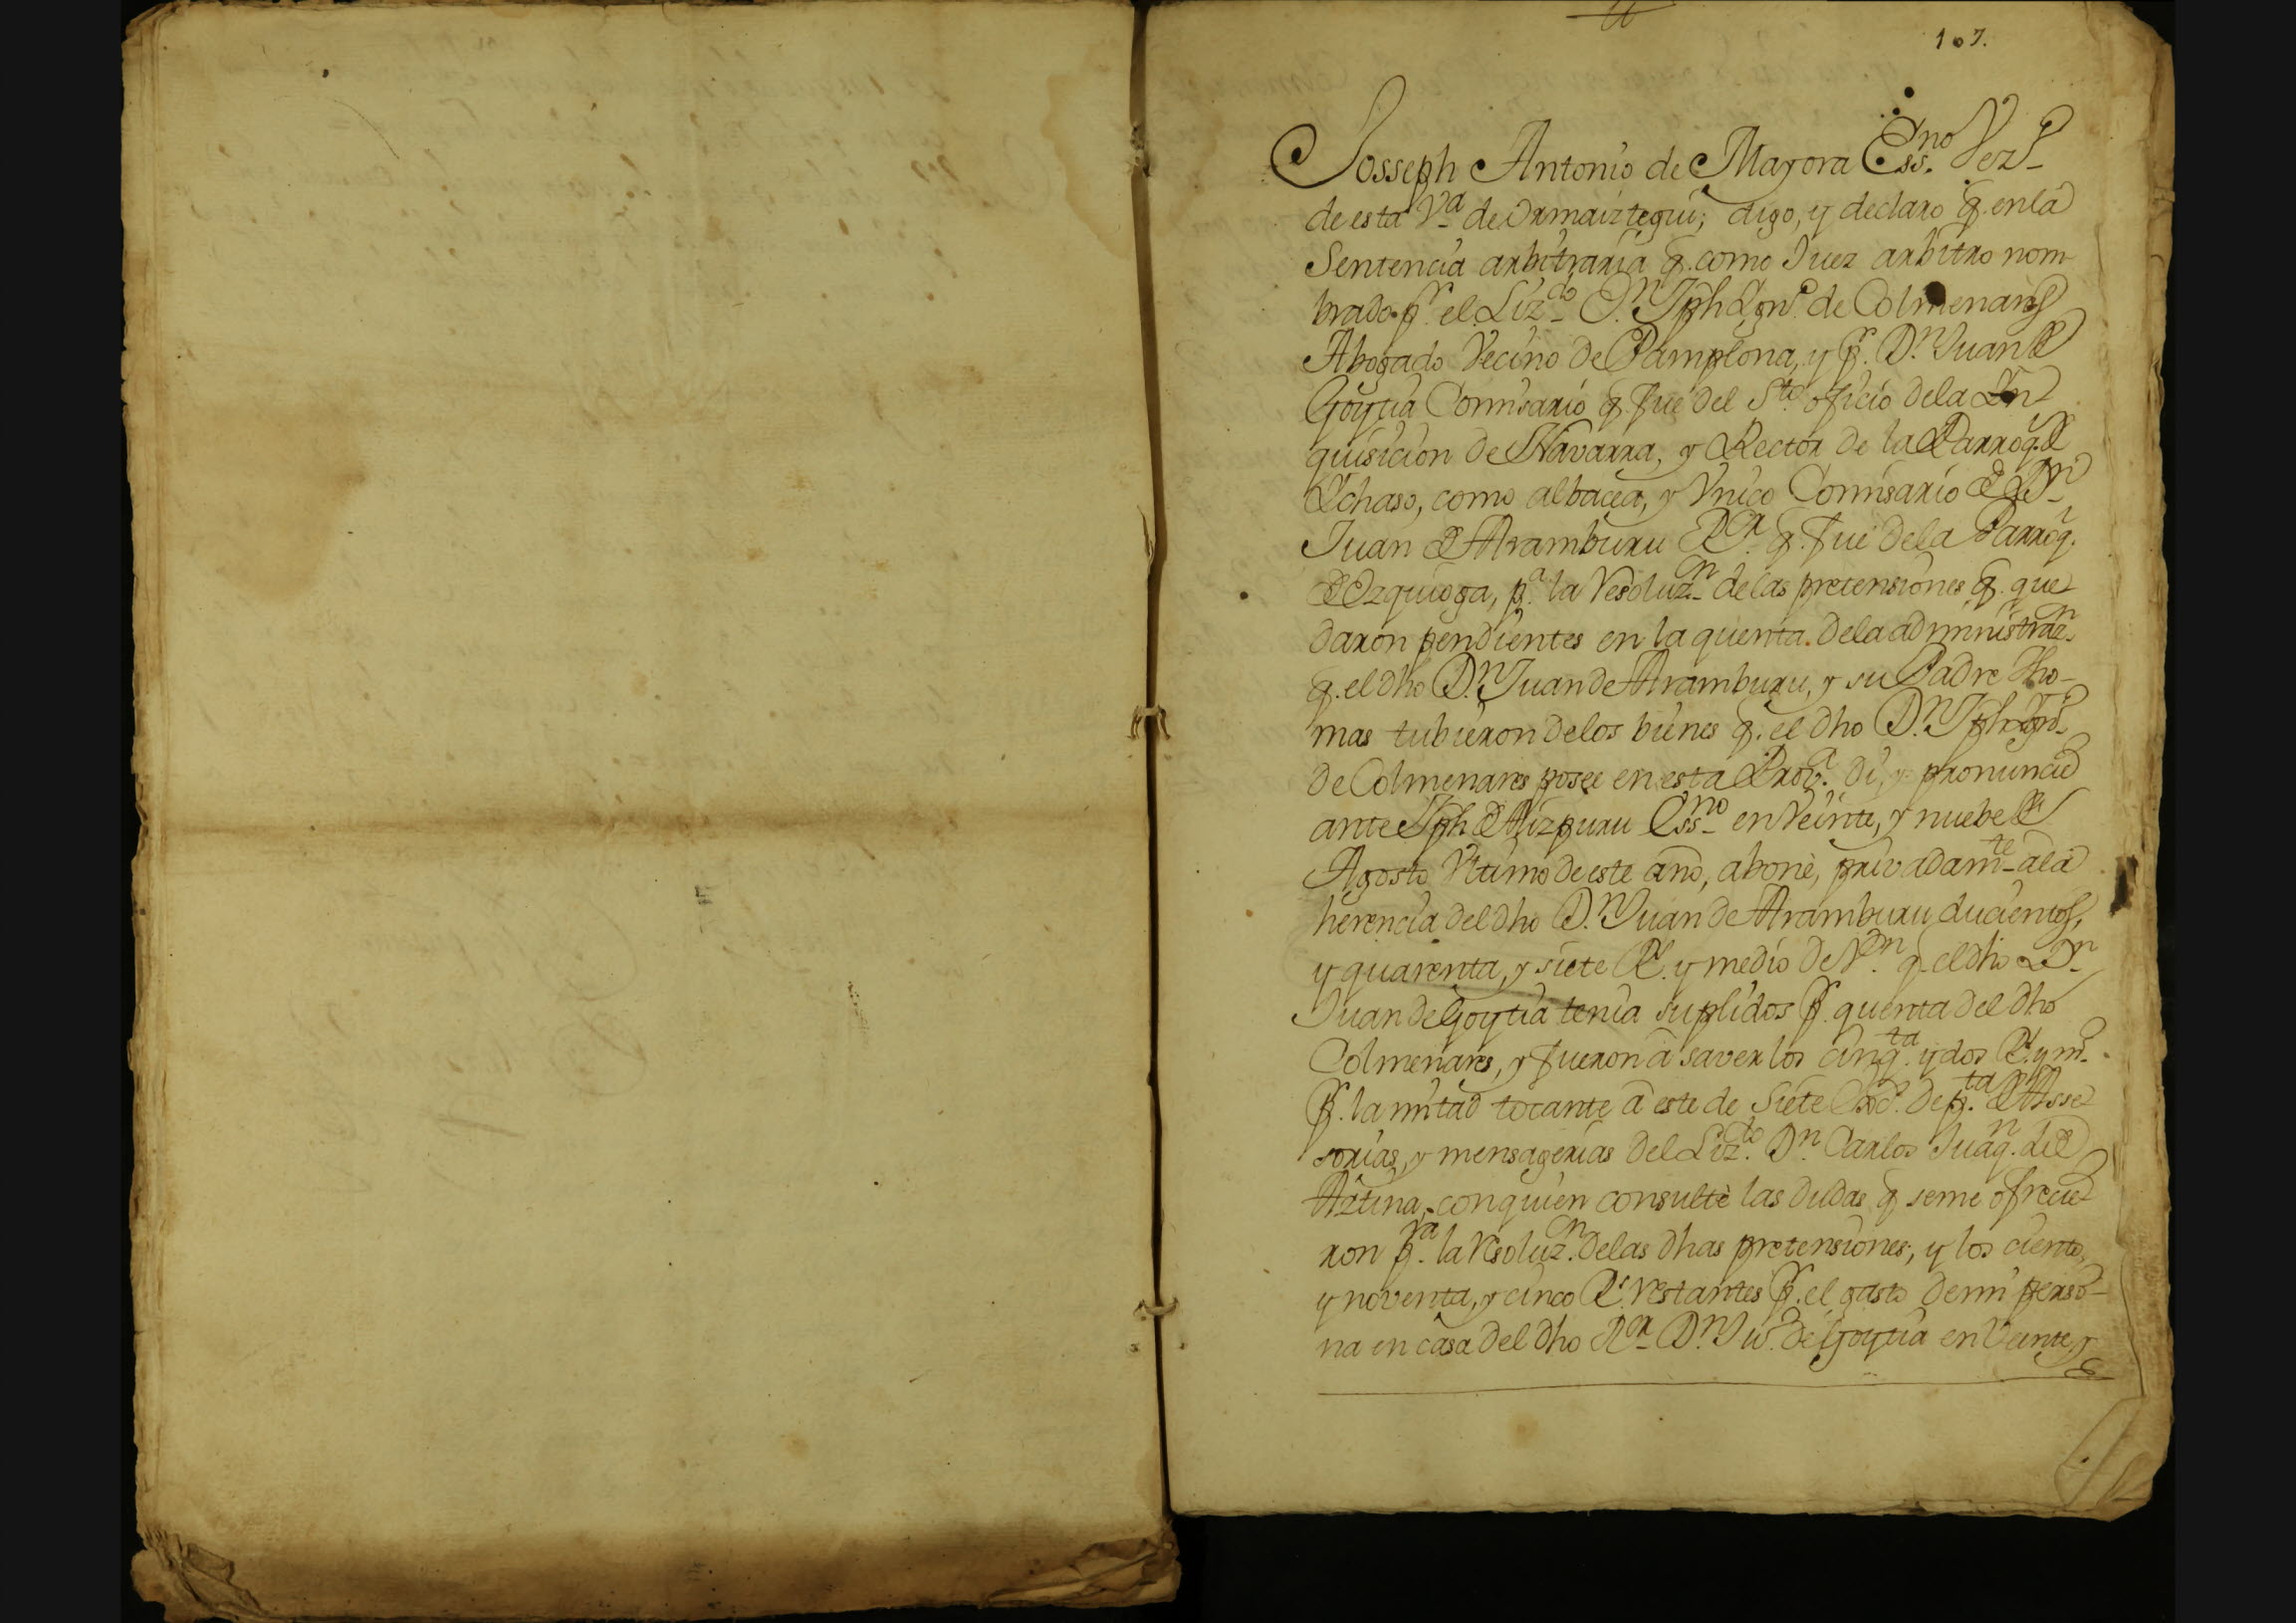 107.
Josseph Antonio de Mayora Essno Vezº
de esta Vª de Ormaiztegui; digo, y declaro q. en la
Sentencia arbitraria q. como Juez arbitro nom
brado pr el Lizdo Dn Jph Ignº de Colmenares
Abogado Vecino de Pamplona, y pr Dn Juan de
Goytia Comisario q. fue del Sto oficio de la In
quisicion de Navarra, y Rector de la Parroqª de
Ychaso, como albacea, y Vnico Comisario de Dn
Juan de Aramburu Ror q. fue de la Parroqª
de Ezquioga, pª la Resoluzn de las pretensiones q. que
daron pendientes en la quenta de la administrazn
q. el dho Dn Juan de Aramburu, y su Padre Tho-
mas tubieron de los bienes q. el dho Dn Jph Ignº
de Colmenares posee en esta Provª di, y pronuncie
ante Jph de Aizpuru Essno en Veinte, y nuebe de
Agosto Vltimo de este año, abonè, privadamte a la
herencia del dho Dn Juan de Aramburu ducientos,
y quarenta, y siete Rs. y medio de Von q. el dho Dn
Juan de Goytia tenia suplidos pr quenta del dho
Colmenares, y fueron â saver los cinqta y dos Rs. y mº
pr la mitad tocante â este de siete de pta de Asse
sorias, y mensagerias del Lizdo Dn Carlos Juaqn de
Aztina, con quien consultè las dudas q se me ofrecie
ron pra la Resoluzn de las dhas pretensiones; y los ciento,
y noventa, y cinco Rs. restantes pr el gasto de mi perso-
na en casa del dho Ror Dn Juº de Goytia en Veinte, y